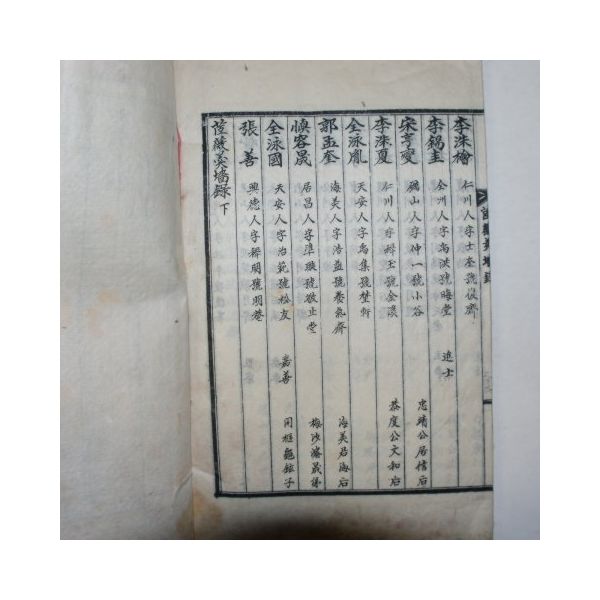 李洙檜 仁川人字士奎號復齊
李錫圭 全州人字禹洪號晦堂 進士
宋亨燮 礪山人字仲一號小谷 忠靖公居信后
李洙夏 仁川人字 玉號金溪 恭度公文和后
全泳胤 天安人字禹集號 軒
郭孟奎 海美人字浩益號養氣齊 海美君海后
愼容晟 居昌人字準 號敬止堂 梅沙 晟孫
全泳國 天安人字治範號松友 嘉善 同樞 子
張善 興德人字 明號明菴
羹墻錄 下